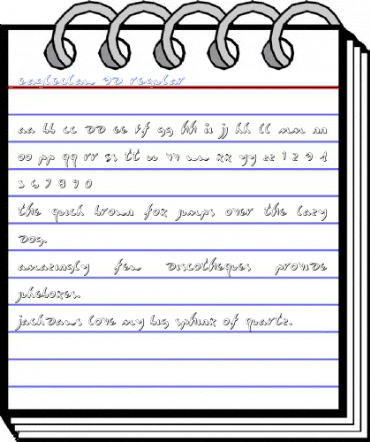 eagleclaw 3D regular
aa bb cc DD ee ff gg hh ii jj kk ll mm nn
oo pp qq rr ss tt uu vv ww xx yy zz 1 2 3 4
5 6 7 8 9 0
the quick brown fox jumps over the lazy
Dog.
amazingly few Discotheques provide
jukeboxes.
jackDaws love my big sphinx of quartz.